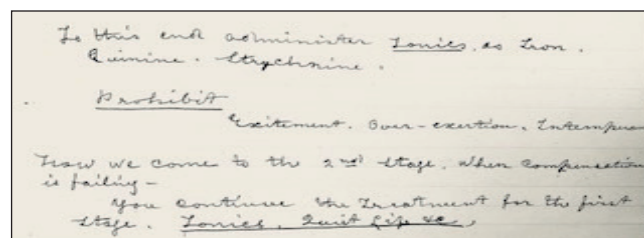 To this end administer Tonics. as Iron.
Quinine. Strychnine.
Prohibit
Excitement. Over-exertion. Intempera
Now we come to the 2nd stage. When Compensation
is failing—
You continue the Treatment for the first
stage. Tonics, Quiet life &c.